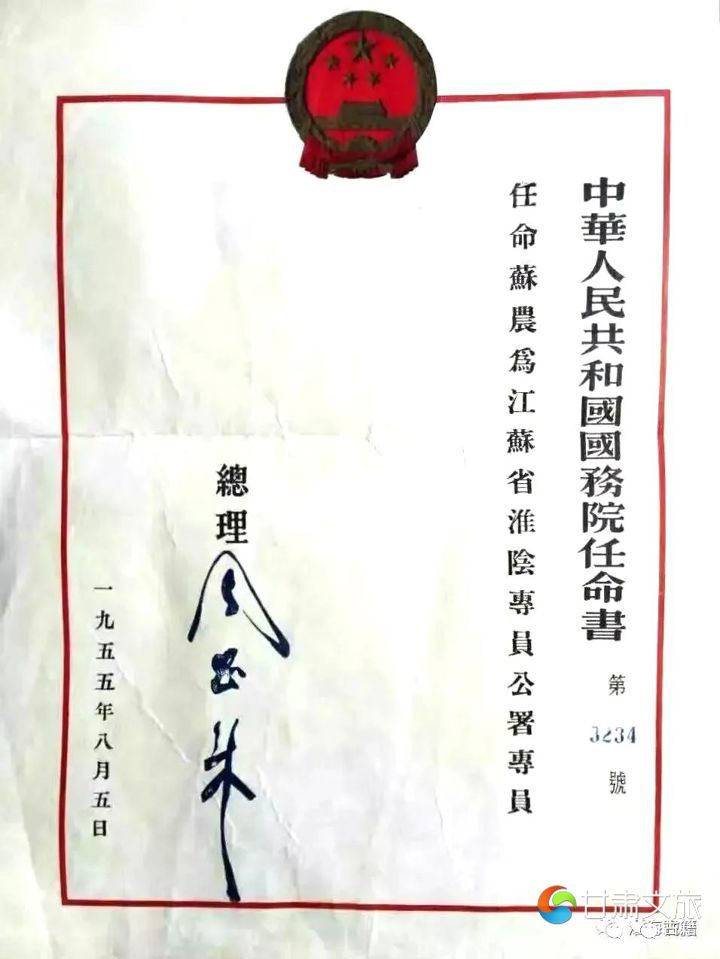 中華人民共和國國務院任命書
第3234號
任命蘇農爲江蘇省淮陰專員公署專員
總理
周恩來
一九五五年八月五日
甘肃文旅